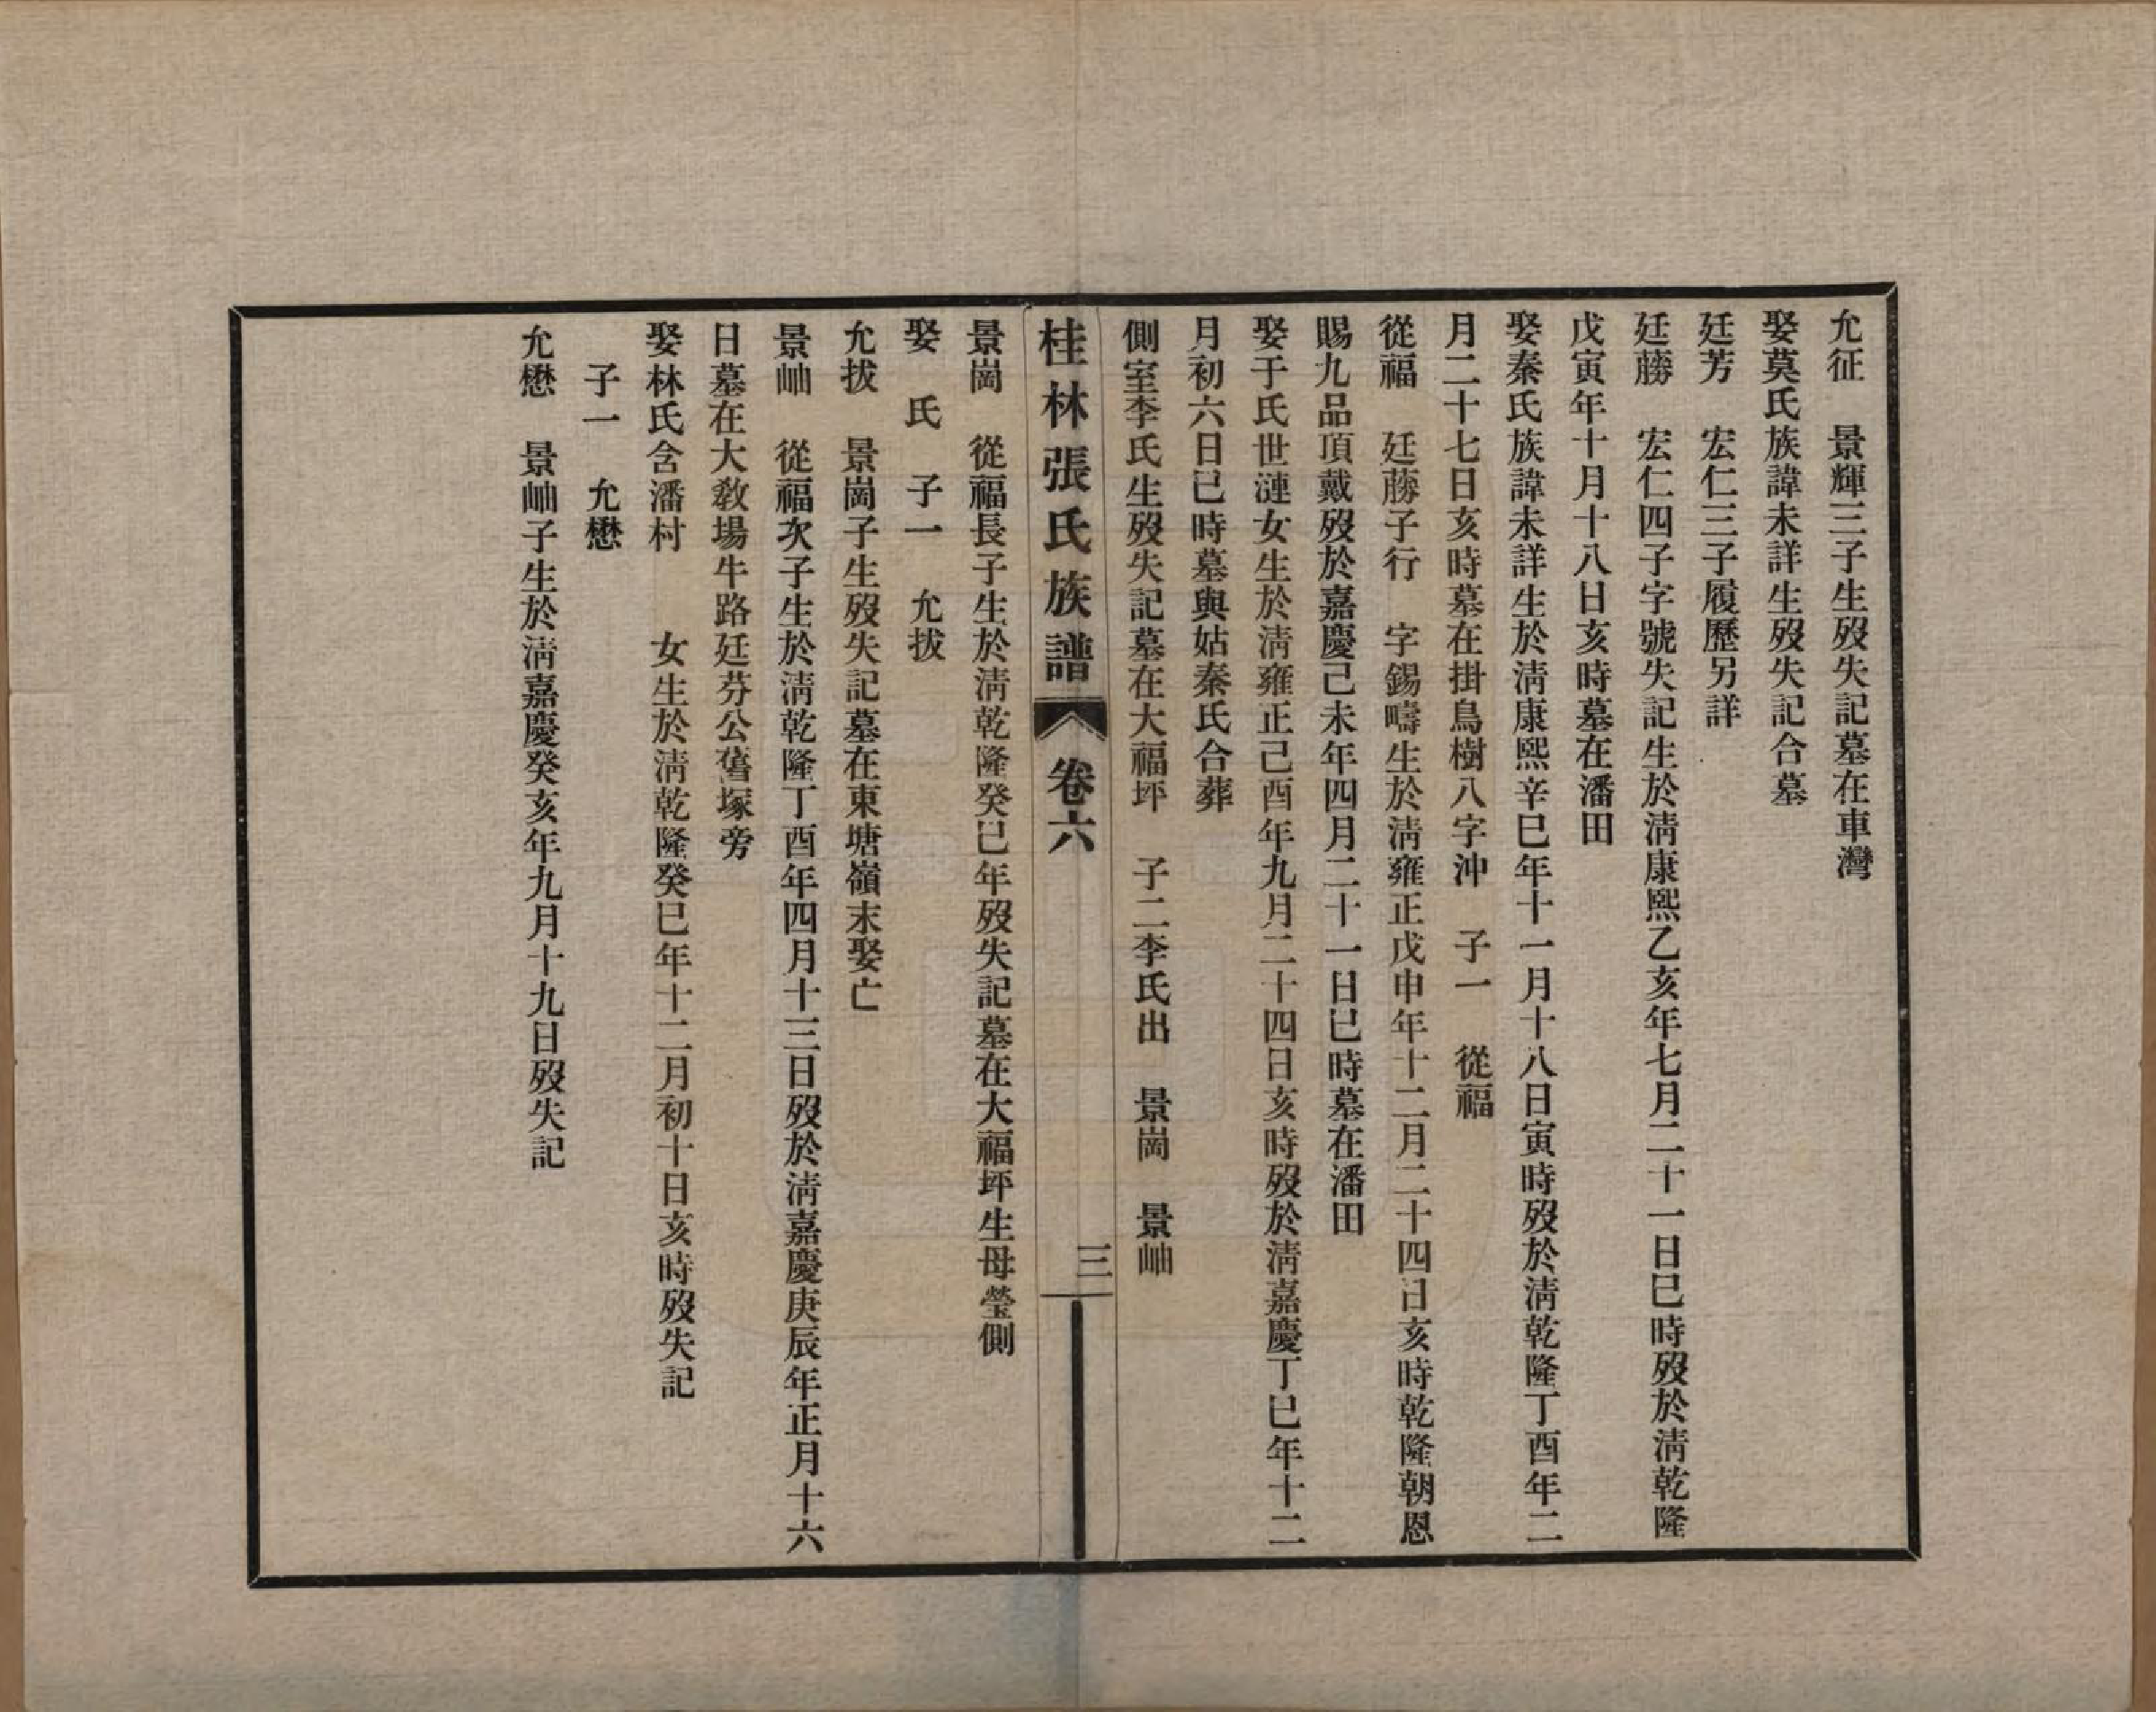 允征　景輝三子生歿失記墓在車灣
娶莫氏族諱未詳生歿失記合墓
廷芳　宏仁三子履歷另詳
廷藤　宏仁四子字號失記生於淸康熙乙亥年七月二十一日巳時歿於淸乾隆
戊寅年十月十八日亥時墓在潘田
娶秦氏族諱未詳生於淸康熙辛巳年十一月十八日寅時歿於淸乾隆丁酉年二
月二十七日亥時墓在掛鳥樹八字沖　子一　從福
從福　廷藤子行　字錫疇生於淸雍正戊申年十二月二十四日亥時乾隆朝恩
賜九品頂戴歿於嘉慶己未年四月二十一日巳時墓在潘田
娶于氏世漣女生於淸雍正己酉年九月二十四日亥時歿於淸嘉慶丁巳年十二
月初六日巳時墓與姑秦氏合葬
側室李氏生歿失記墓在大福坪　子二李氏出　景崗　景岫
桂林張氏族譜　卷六　三
景崗　從福長子生於淸乾隆癸巳年歿失記墓在大福坪生母塋側
娶　氏　子一　允拔
允拔　景崗子生歿失記墓在東塘嶺末娶亡
景岫　從福次子生於淸乾隆丁酉年四月十三日歿於淸嘉慶庚辰年正月十六
日墓在大敎場牛路廷芬公舊塚旁
娶林氏含潘村　　女生於淸乾隆癸巳年十二月初十日亥時歿失記
子一　允懋
允懋　景岫子生於淸嘉慶癸亥年九月十九日歿失記